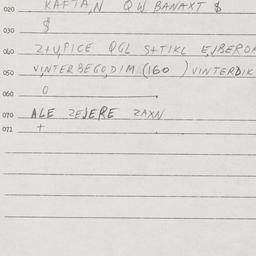 020 KAFTA,N QW BANAXT $
030 $
060 Z+U,PICE QGL S+TIKL
050 V,INTERBEGO,DIM (160 ) VINTERDIK
060 0
070 ALE ZEJERE ZAXN
071 +